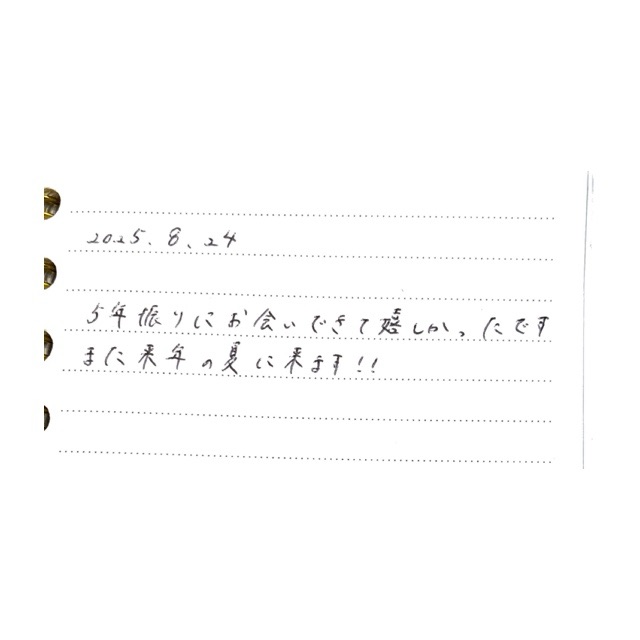 2025.8.24
5年振りにお会いできて嬉しかったです
また来年の夏に来ます!!